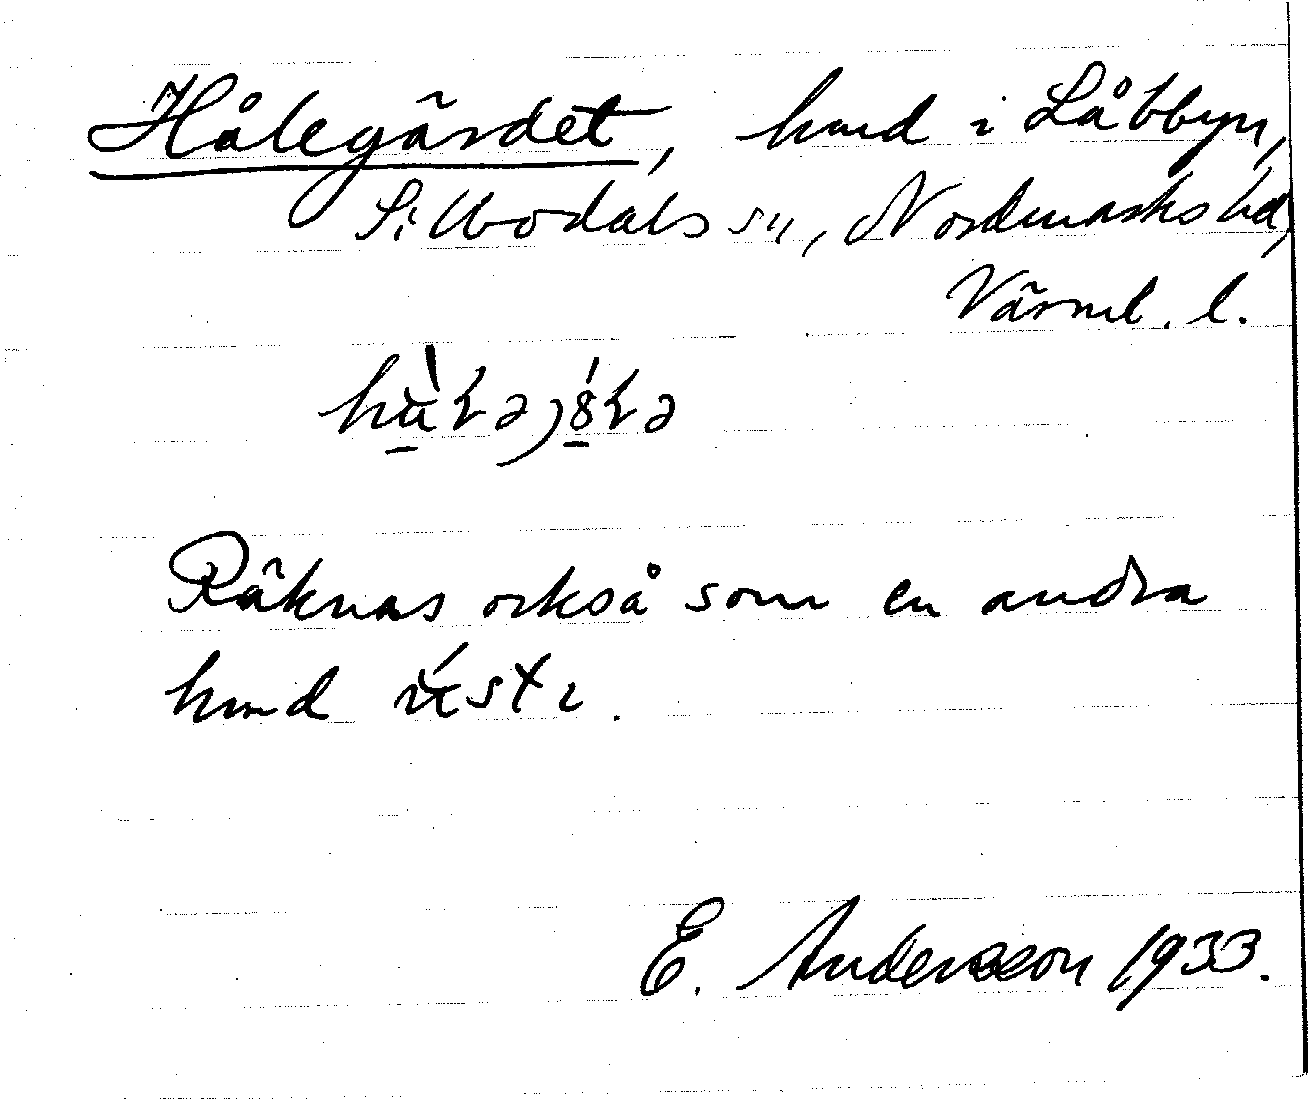 Hålegärdet, hmd i Låbbyn,
Silbodals sn, Nordmarks hd,
Värml. l.
Räknas också som en andra
hmd
E. Andersson 1933.